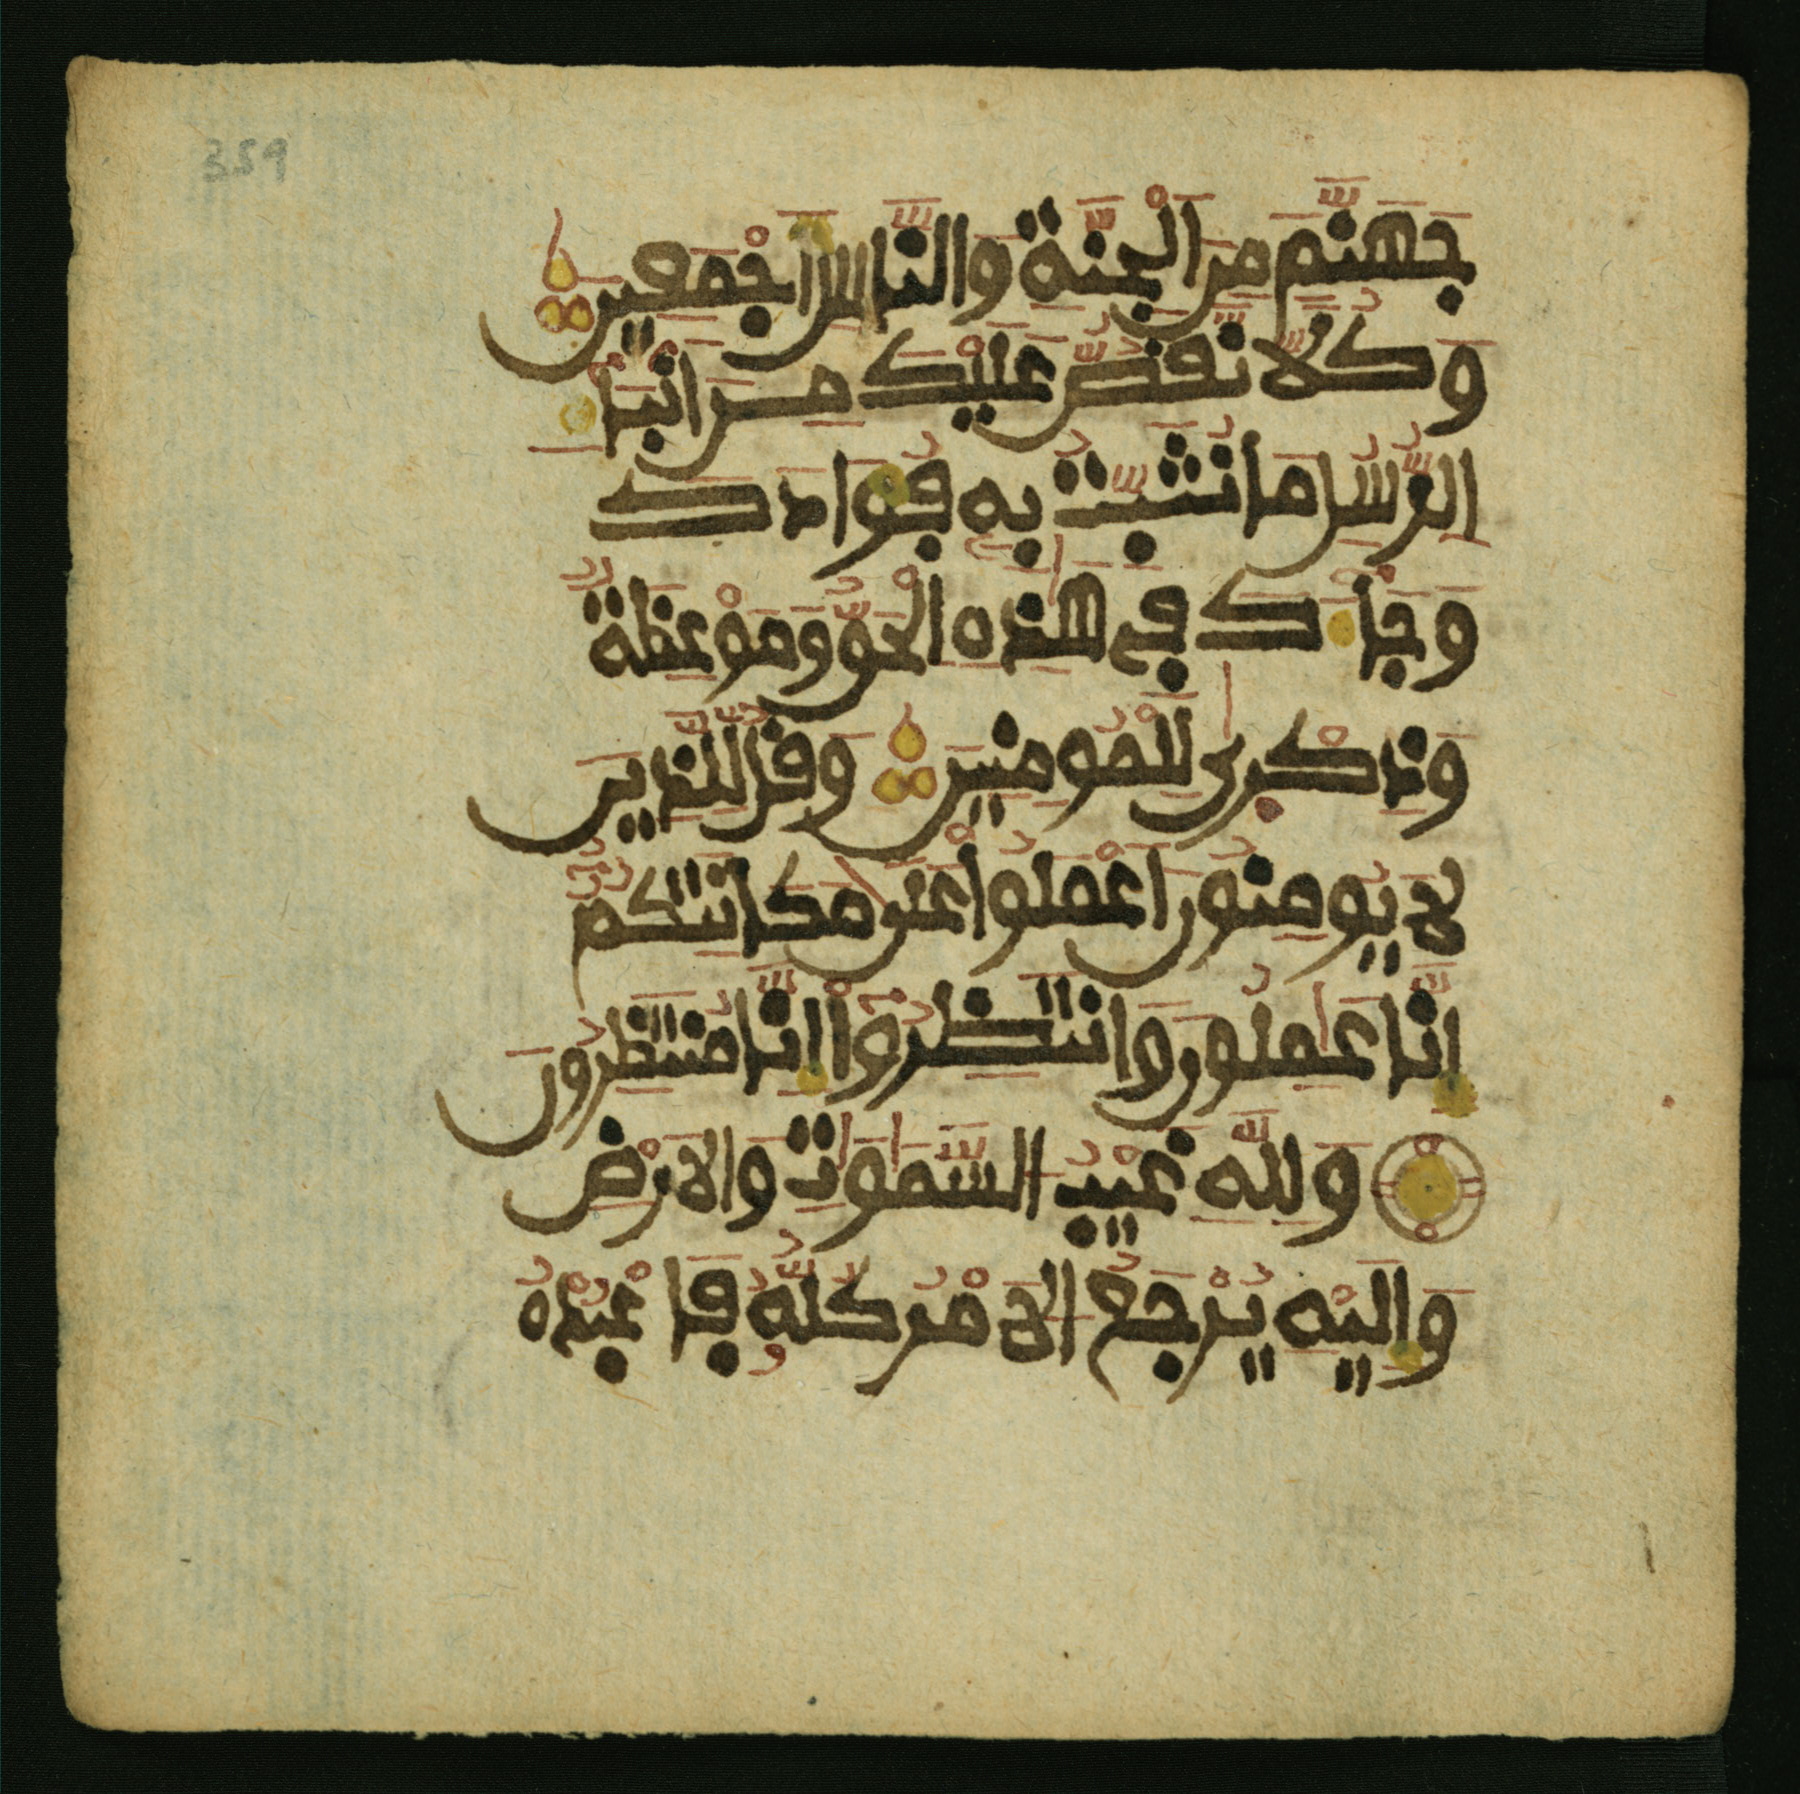 359
جَهَنَّمَ مِنَ الْجِنَّةِ وَالنَّاسِ أَجْمَعِينَ
وَكُلّاً نَّقُصُّ عَلَيْكَ مِنَ انۢبَآءِ
الرُّسُلِ مَا نُثَبِّتُ بِهِۦ فُوَادَكَ
وَجَآءَكَ فِے هَٰذِهِ الْحَقُّ وَمَوْعِظَةٌ
وَذِكْرَىٰ لِلْمُومِنِينَ وَقُل لِّلَّذِينَ
لَا يُومِنُونَ اَعْمَلُوا عَلَىٰ مَكَانَتِكُمُۥٓ
إِنَّا عَٰمِلُونَ وَانتَظِرُوٓا إِنَّا مُنتَظِرُونَ
وَلِلهِ غَيْبُ السَّمَٰوَٰتِ وَالَارْضِ
وَإِلَيْهِ يُرْجَعُ الَامْرُ كُلُّهُۥ فَاعْبُدْهُ